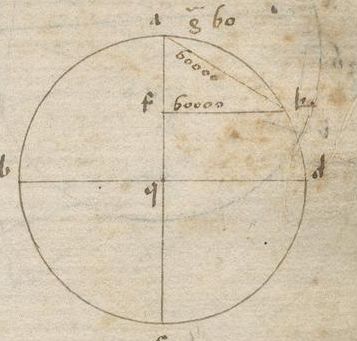 a g̃ 60
60000
f 60000 h
b q d
c